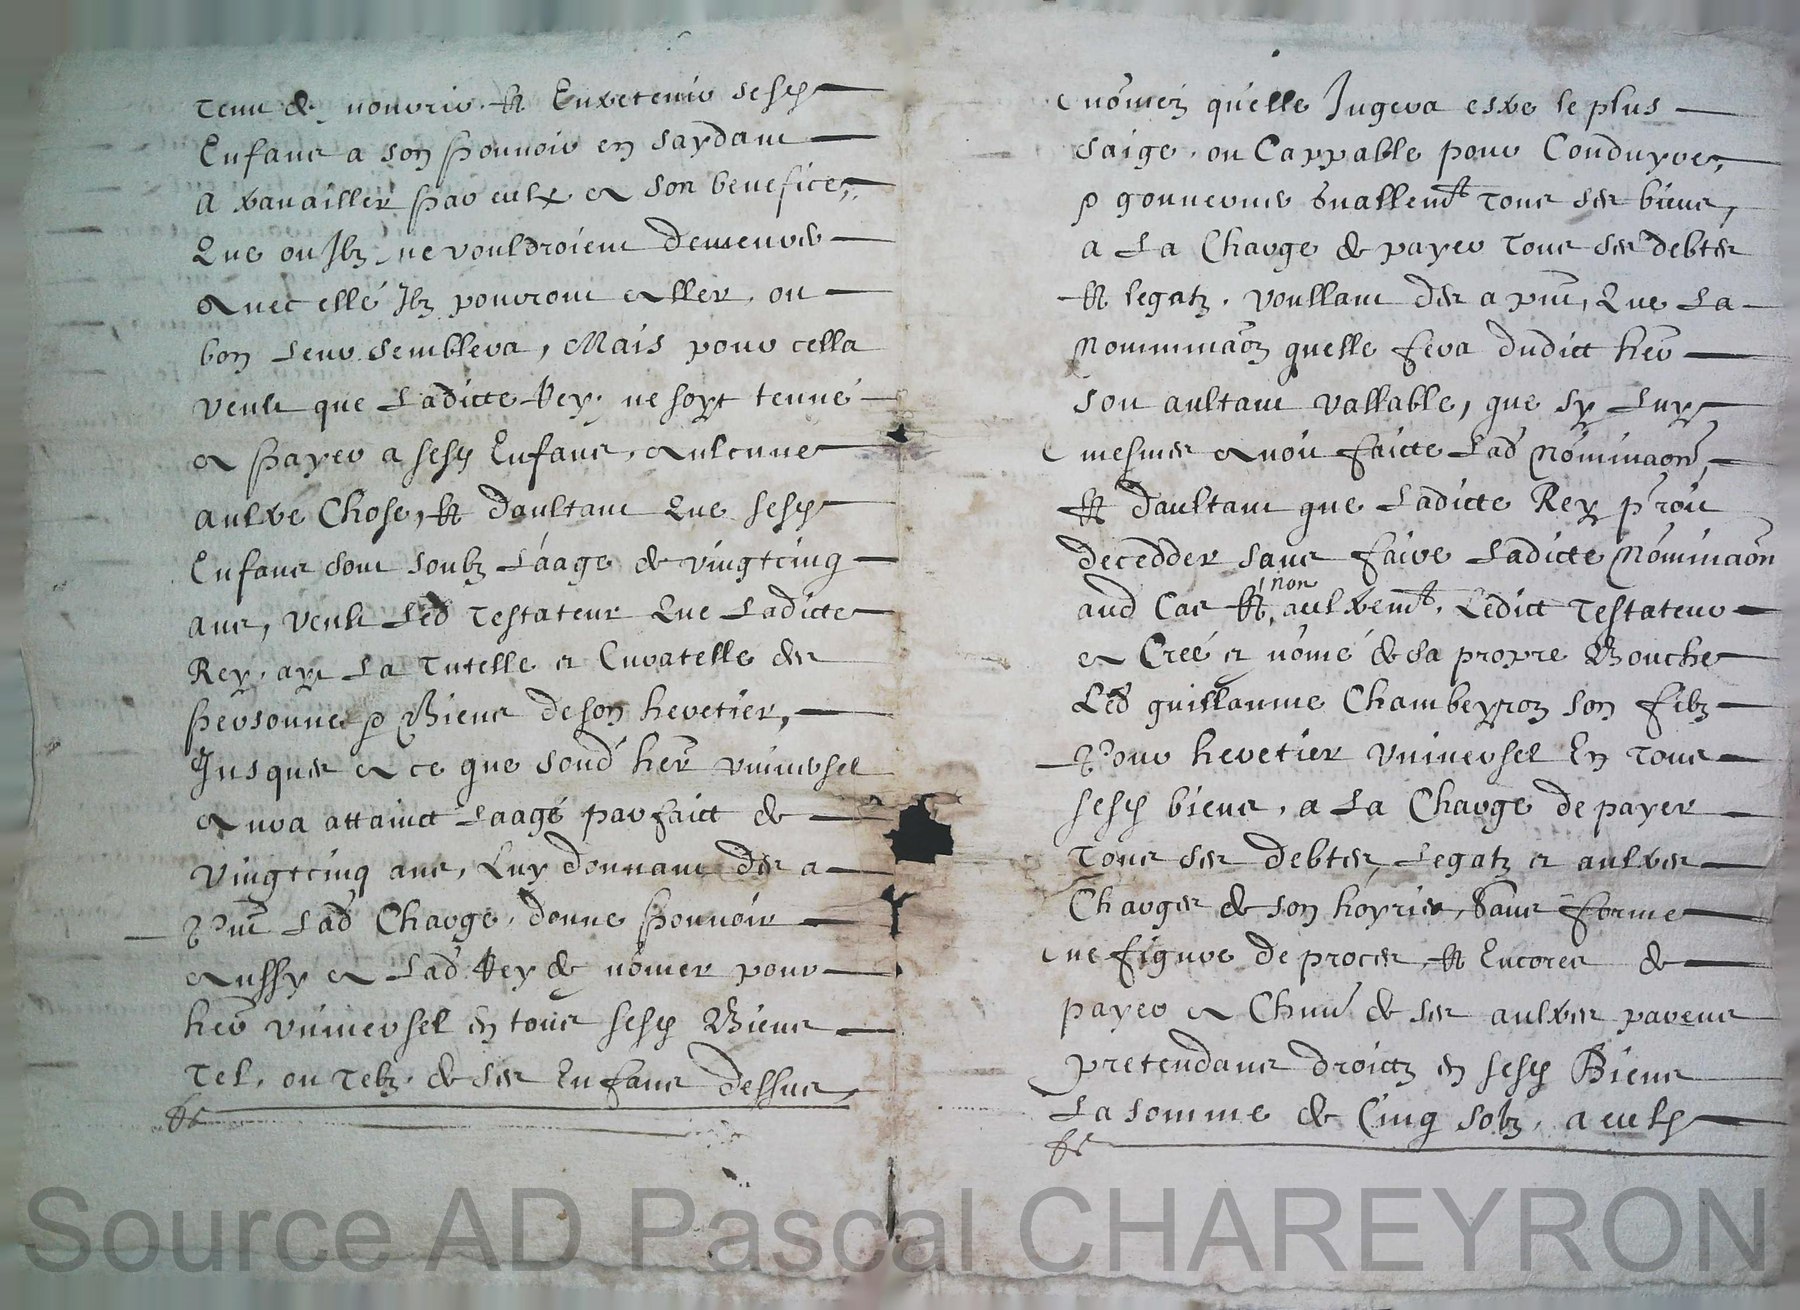 tenue de nourrir et Entretenir sesd
Enfans a son pouvoir en saydant
a travailler par eulx a son benefice,
Que ou Ilz ne vouldroient demeurer
avec elle Ilz pourront aller, ou
bon Leur semblera, Mais pour cella
veult que Ladicte Rey ne soyt tenue
a payer a sesd Enfans, aulcune
aultre Chose, et daultant Que sesd
Enfans sont soubz Laage de vingtcinq
ans, veult Led Testateur Que Ladicte
Rey, aye La Tutelle et Curatelle des
personne & Biens de son heretier,
Jusques a ce que sond her universel
aura attainct Laage parfaict de
vingtcinq ans, Luy donnant des a
Pnt Lad Charge, donne pouvoir
aussy a Lad Rey de nômer pour
her universel en tous sesd Biens
Tel, ou Telz de ses Enfans dessus
nômez quelle Jugera estre le plus
saige, ou Cappable pour Conduyre,
& gouverner Esgallemt tous ses biens,
a La Charge de payer tous ses debtes
et legatz, voullant des a pnt, Que La
Nomminaôn quelle fera dudict her
soit aultant vallable, que sy Luy
mesmes avoit faicte Lad Nôminaôn,
et daultant que Ladicte Rey prôit
decedder sans faire Ladicte Nôminaôn
aud Cas et non aultremt, Ledict Testateur
a Creé et nômé de sa propre Bouche
Led guillaume Chambeyron son filz
Pour heretier universel En tous
sesd biens, a La Charge de payer
Tous ses debtes, Legatz et aultres
Charges de son hoyrie, Sans forme
ne figure de proces, et Encores de
payer a Chun de ses aultres parens
pretendans droictz en sesd Biens
La somme de Cinq solz, a eulx
Source AD Pascal CHAREYRON